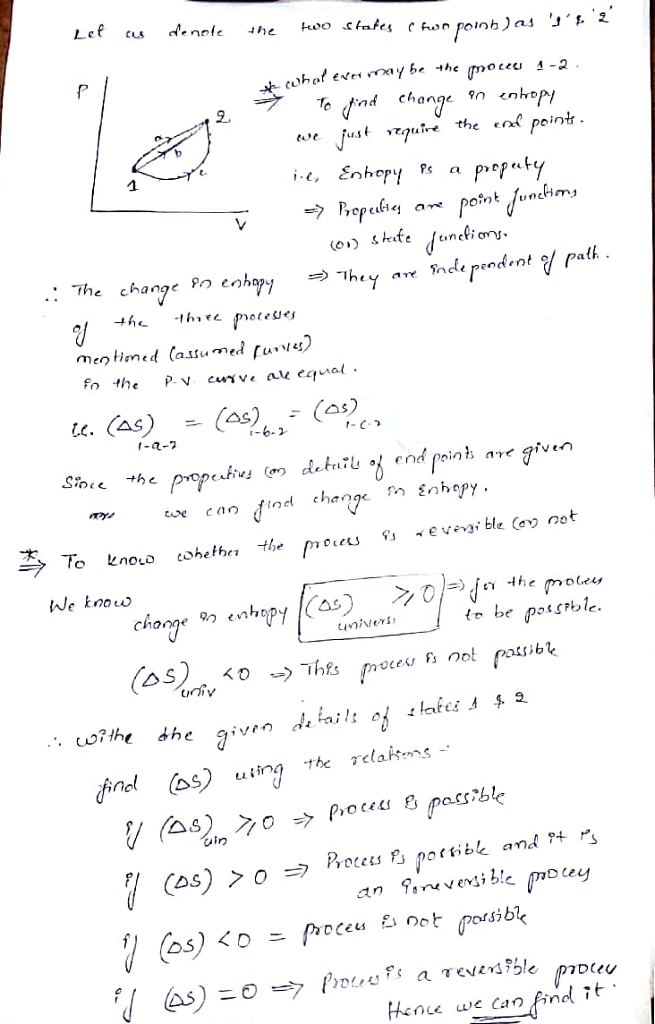 Let us denote the two states (two points) as '1' & '2'
P
2
a
b
c
1
V
* whatever may be the process 1-2.
⇒ To find change in entropy
we just require the end points.
i.e, Entropy is a property
⇒ Properties are point functions
(or) state functions.
⇒ They are independent of path.
∴ The change in entropy
of the three processes
mentioned (assumed curves)
in the P-V curve are equal.
i.e. (ΔS)1-a-2 = (ΔS)1-b-2 = (ΔS)1-c-2
Since the properties (or) details of end points are given
we can find change in Entropy.
* ⇒ To know whether the process is reversible (or) not
We know
change in entropy (ΔS)univers ≥ 0 ⇒ for the process
to be possible.
(ΔS)univ < 0 ⇒ This process is not possible
∴ withe the given details of states 1 & 2
find (ΔS) using the relations -
if (ΔS) ≥ 0 ⇒ process is possible
if (ΔS) > 0 ⇒ Process is possible and it is
an irreversible process
if (ΔS) < 0 = process is not possible
if (ΔS) = 0 ⇒ Process is a reversible process
Hence we can find it.